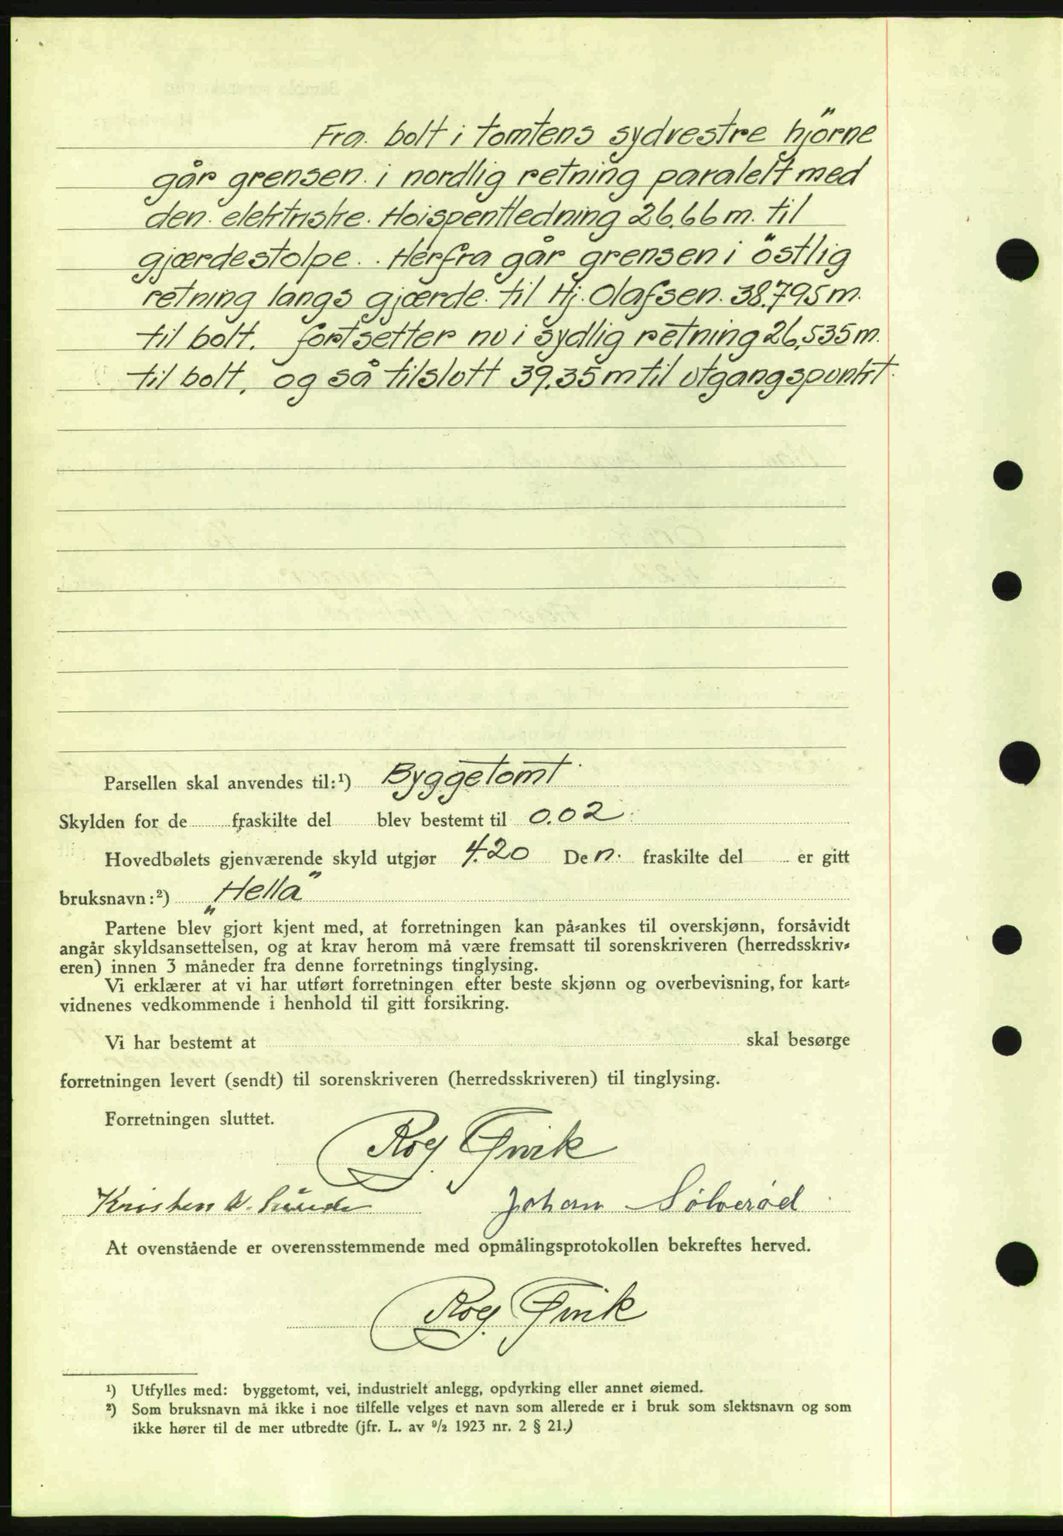 Fra bolt i tomtens sydvestre hjörne
går grensen i nordlig retning paralelt med
den elektriske Høispentledning 26.66 m. til
gjærdestolpe. Herfra går grensen i östlig
retning langs gjærde til Hj. Olafsen 38.795 m.
til bolt. fortsetter nu i sydlig retning 26,535 m.
til bolt, og så tilslutt 39.35 m til utgangspunkt.
Parsellen skal anvendes til:¹) Byggetomt
Skylden for de fraskilte del blev bestemt til 0.02
Hovedbølets gjenværende skyld utgjør 4.20 Den fraskilte del er gitt
bruksnavn:²) „Hella"
Partene blev gjort kjent med, at forretningen kan på-ankes til overskjønn, forsåvidt
angår skyldsansettelsen, og at krav herom må være fremsatt til sorenskriveren (herredsskriv-
eren) innen 3 måneder fra denne forretnings tinglysing.
Vi erklærer at vi har utført forretningen efter beste skjønn og overbevisning, for kart-
vidnenes vedkommende i henhold til gitt forsikring.
Vi har bestemt at skal besørge
forretningen levert (sendt) til sorenskriveren (herredsskriveren) til tinglysing.
Forretningen sluttet.
Roy
Kristen Johan Sølverød
At ovenstående er overensstemmende med opmålingsprotokollen bekreftes herved.
Roy
¹) Utfylles med: byggetomt, vei, industrielt anlegg, opdyrking eller annet øiemed.
²) Som bruksnavn må ikke i noe tilfelle velges et navn som allerede er i bruk som slektsnavn og som
ikke hører til de mer utbredte (jfr. L. av ⁹/₂ 1923 nr. 2 § 21.)